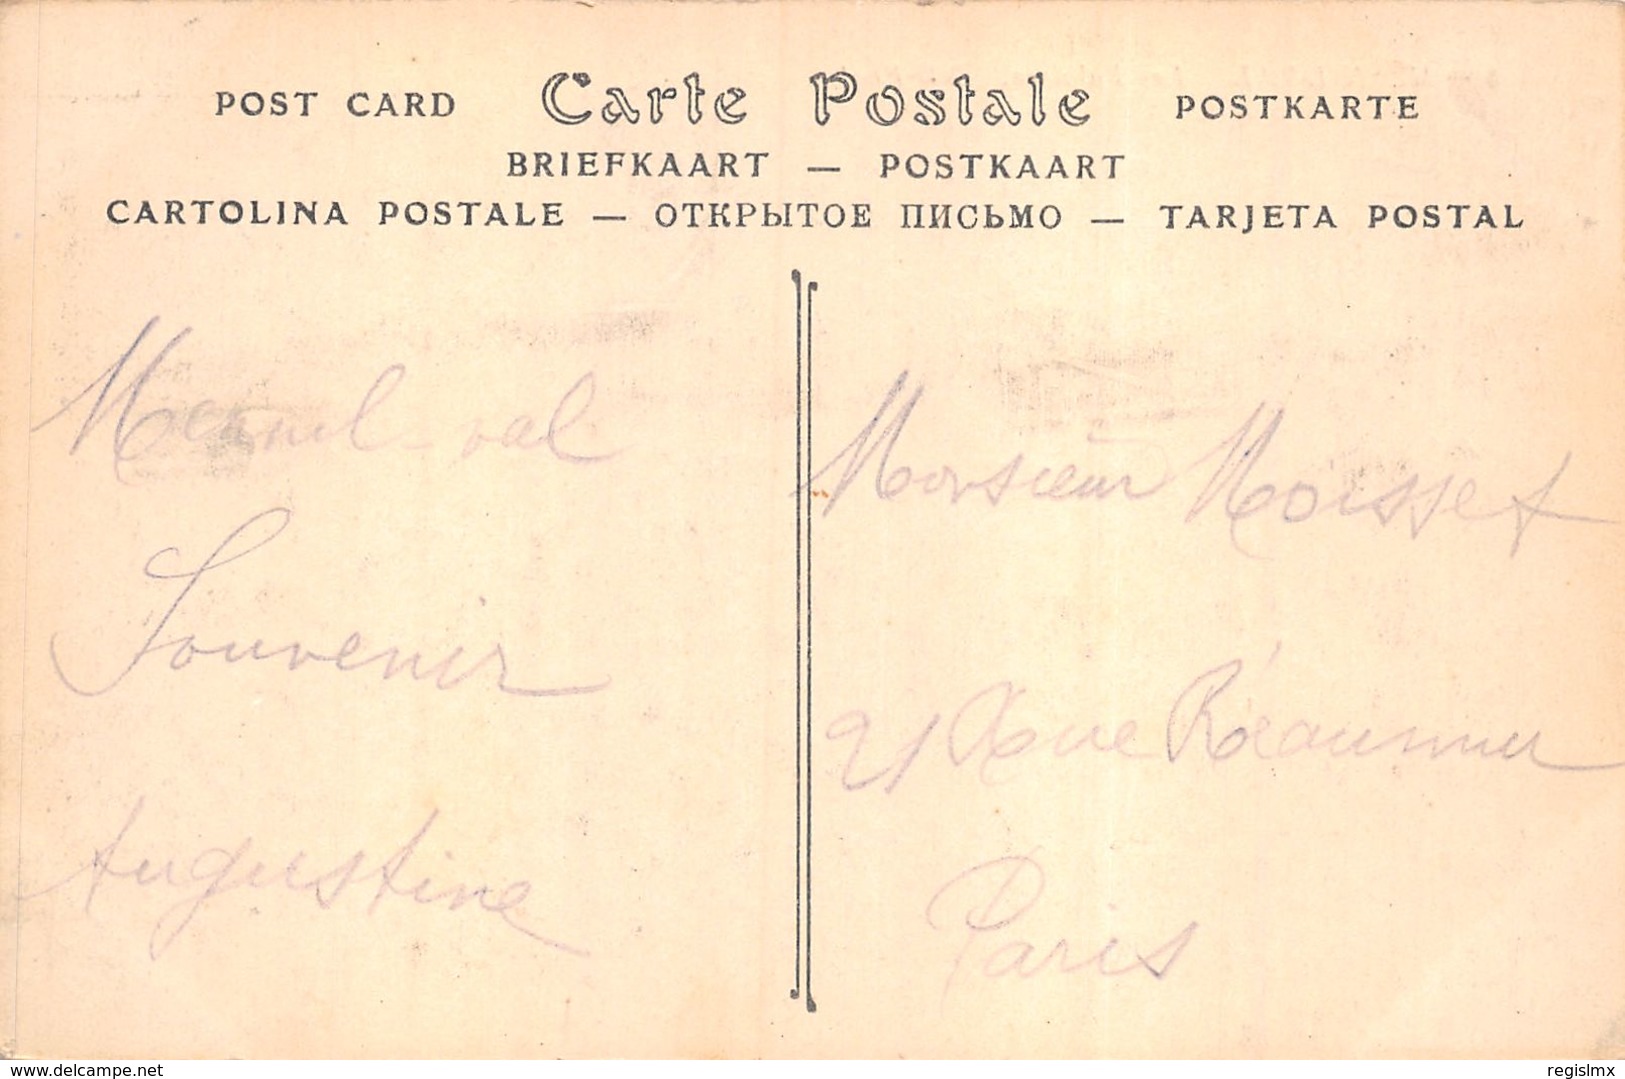 POST CARD Carte Postale POSTKARTE
BRIEFKAART — POSTKAART
CARTOLINA POSTALE — ОТКРЫТОЕ ПИСЬМО — TARJETA POSTAL
Mesnil-val
Souvenir
Augustine
Monsieur Moisset
21 Rue Réaumur
Paris
www.delcampe.net
regislmx